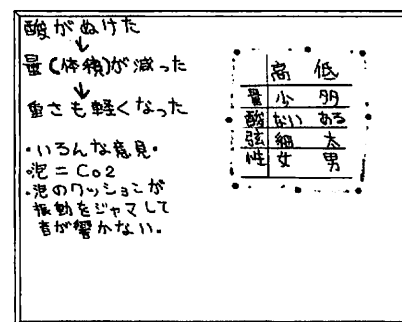 酸がぬけた
↓
量(体積)が減った
↓
重さも軽くなった
・いろんな意見・
・泡=Co2
・泡のクッションが
振動をジャマして
音が響かない.
高 低
量 少 多
酸 ない ある
弦 細 太
性 女 男